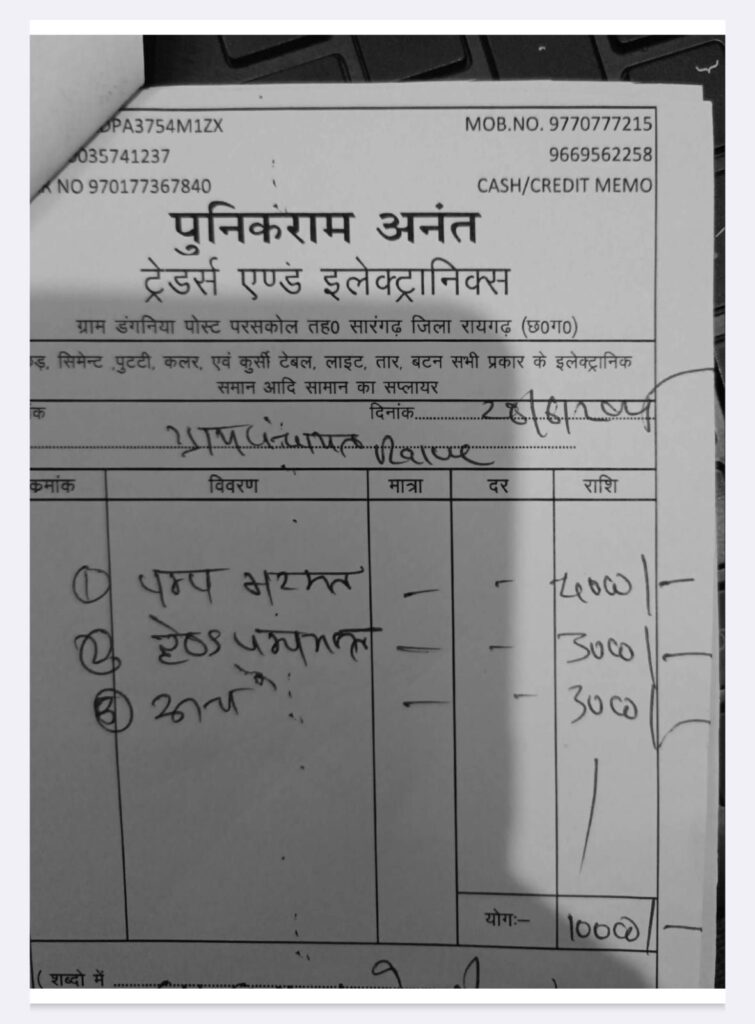 DPA3754M1ZX MOB.NO. 9770777215
0035741237 9669562258
NO 970177367840 CASH/CREDIT MEMO
पुनिकराम अनंत
ट्रेडर्स एण्ड इलेक्ट्रानिक्स
ग्राम डंगनिया पोस्ट परसकोल तह० सारंगढ़ जिला रायगढ़ (छ०ग०)
सिमेन्ट पुटटी, कलर, एवं कुर्सी टेबल, लाइट, तार, बटन सभी प्रकार के इलेक्ट्रानिक
समान आदि सामान का सप्लायर
क दिनांक
ग्राम पंचायत
क्रमांक विवरण मात्रा दर राशि
① पम्प मरम्मत — - 4000/—
② हेण्ड पम्प — - 3000/—
③ — - 3000/
योगः– 10000/—
( शब्दो में